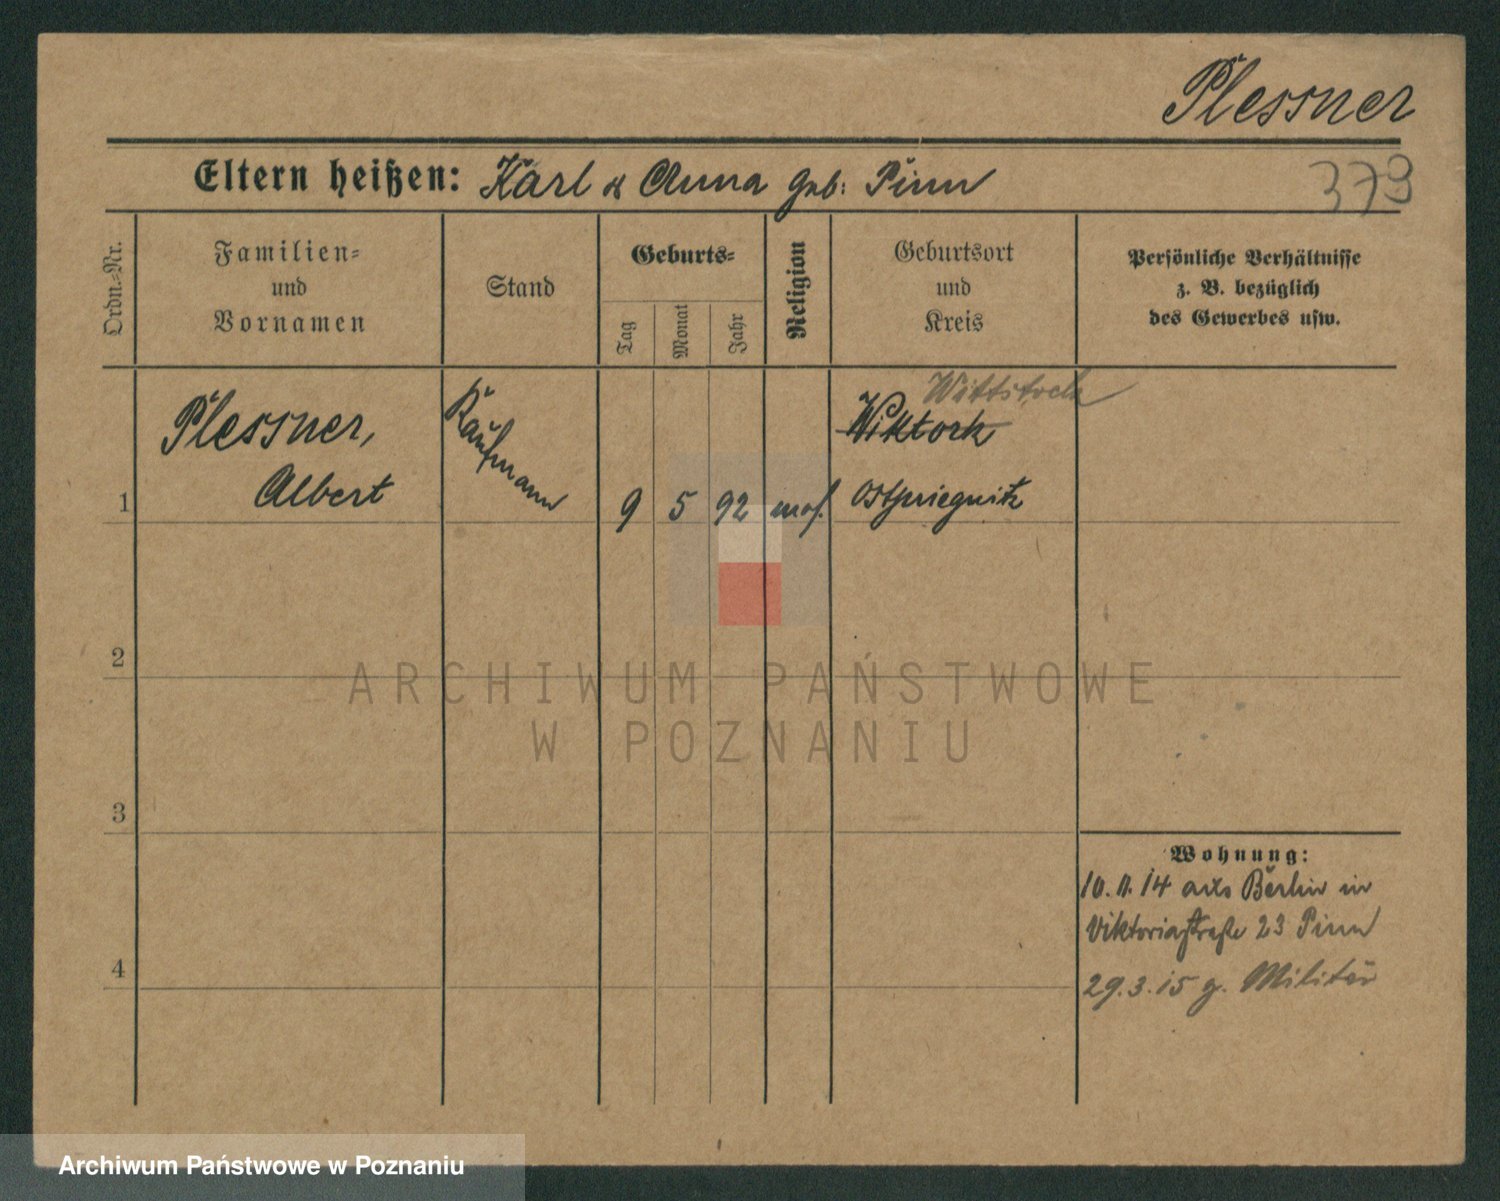 Plessner
Eltern heißen: Karl & Anna geb: Pinn
379
Ordn.-Nr.
Familien-
und
Vornamen
Stand
Geburts-
Tag
Monat
Jahr
Religion
Geburtsort
und
Kreis
Persönliche Verhältnisse
z. B. bezüglich
des Gewerbes usw.
1
Plessner,
Albert
Kaufmann
9
5
92
mos.
Wittstock
Wiktork
Ostpriegnitz
2
3
4
Wohnung:
10.11.14 aus Berlin in
Viktoriastraße 23 Pinn
29.3.15 z. Militär
ARCHIWUM PAŃSTWOWE
W POZNANIU
Archiwum Państwowe w Poznaniu